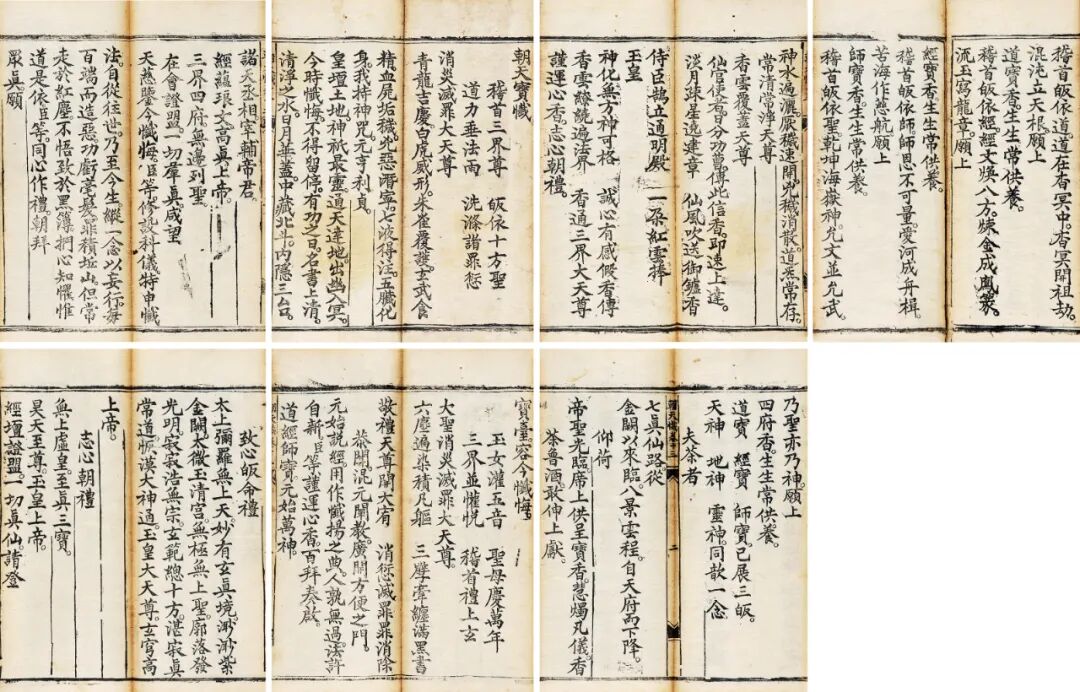 稽首皈依道。道在杳冥中。杳冥開祖劫。
混沌立天根。願上
道寶香。生生常供養。
稽首皈依經。經文煥八方。煉金成鳳篆。
流玉寫龍章。願上
經寶香。生生常供養。
稽首皈依師。師恩不可量。愛河成舟楫。
苦海作慈航。願上
師寶香。生生常供養。
稽首皈依聖。乾坤海嶽神。允文並允武。
神水遍灑。厭穢速開。咒穢消散。道炁常存。
常清常淨天尊
香雲覆蓋天尊
仙官使者各分功曹傳此信香。即速上達。
淡月疎星遶建章　仙風吹送御鑪香
侍臣鵠立通明殿　一朶紅雲捧
玉皇
神化無方神可格　誠心有感假香傳
香雲繚繞遍法界　香通三界大天尊
謹運心香。志心朝禮。
朝天寶懺
稽首三界尊　皈依十方聖
道力垂法雨　洗滌諸罪愆
消災滅罪大天尊
青龍吉慶。白虎威形。朱雀覆護。玄武食
精。血尾垢穢。兇惡潛寧。七液得注。五臟化
身。我持神咒。元亨利貞。
皇壇土地。神祇最靈。通天達地。出幽入冥。
今時懺悔。不得留停。有功之日。名書上清。
清淨之水。日月華蓋。中藏北斗。內隱三台。
諸天丞相。宰輔帝君。
經蘊琅文。高眞上帝。
三界四府。無邊列聖
在會證盟。一切羣眞咸望
天慈鑒今懺悔。臣等。修設科儀。特申懺
法。自從往世。乃至今生。縱一念以妄行。每
百端而造惡。功虧毫髮。罪積垃山。但常
走於紅塵。不悟致於黑簿。捫心知懼。惟
道是依。臣等。同心作禮。朝拜
眾眞。願
乃聖亦乃神。願上
四府香。生生常供養。
道寶　經寶　師寶已展三皈。
天神　地神　靈神。同歆一念
夫茶者
七眞仙路從
金闕以來臨。八景雲程。自天府而下降。
仰荷
帝聖光臨。席上供呈寶香。慧燭凡儀。香
茶魯酒。敢伸上獻。
寶臺容今懺悔。
玉女濯五音　聖母慶萬年
三界並懽悅　稽首禮上玄
大聖消災滅罪大天尊
六塵遍染積凡軀　三孽牽纏滿黑書
敬禮天尊開大宥　消愆滅罪罪消除
恭聞。混元開教。廣開方便之門。
元始說經。用作懺揚之典。人孰無過。法許
自新。臣等謹運心香。百拜奏啟
道經師寶元始萬神。
致心皈命禮
太上彌羅無上天。妙有玄眞境。渺渺紫
金闕。太微玉清宮。無極無上聖。廓落發
光明。寂寂浩無宗。玄範總十方。湛寂眞
常道。恢漠大神通。玉皇大天尊。玄穹高
上帝。
志心朝禮
無上虛皇。至眞三寶。
昊天至尊。玉皇上帝。
經壇證盟。一切眞仙。請登